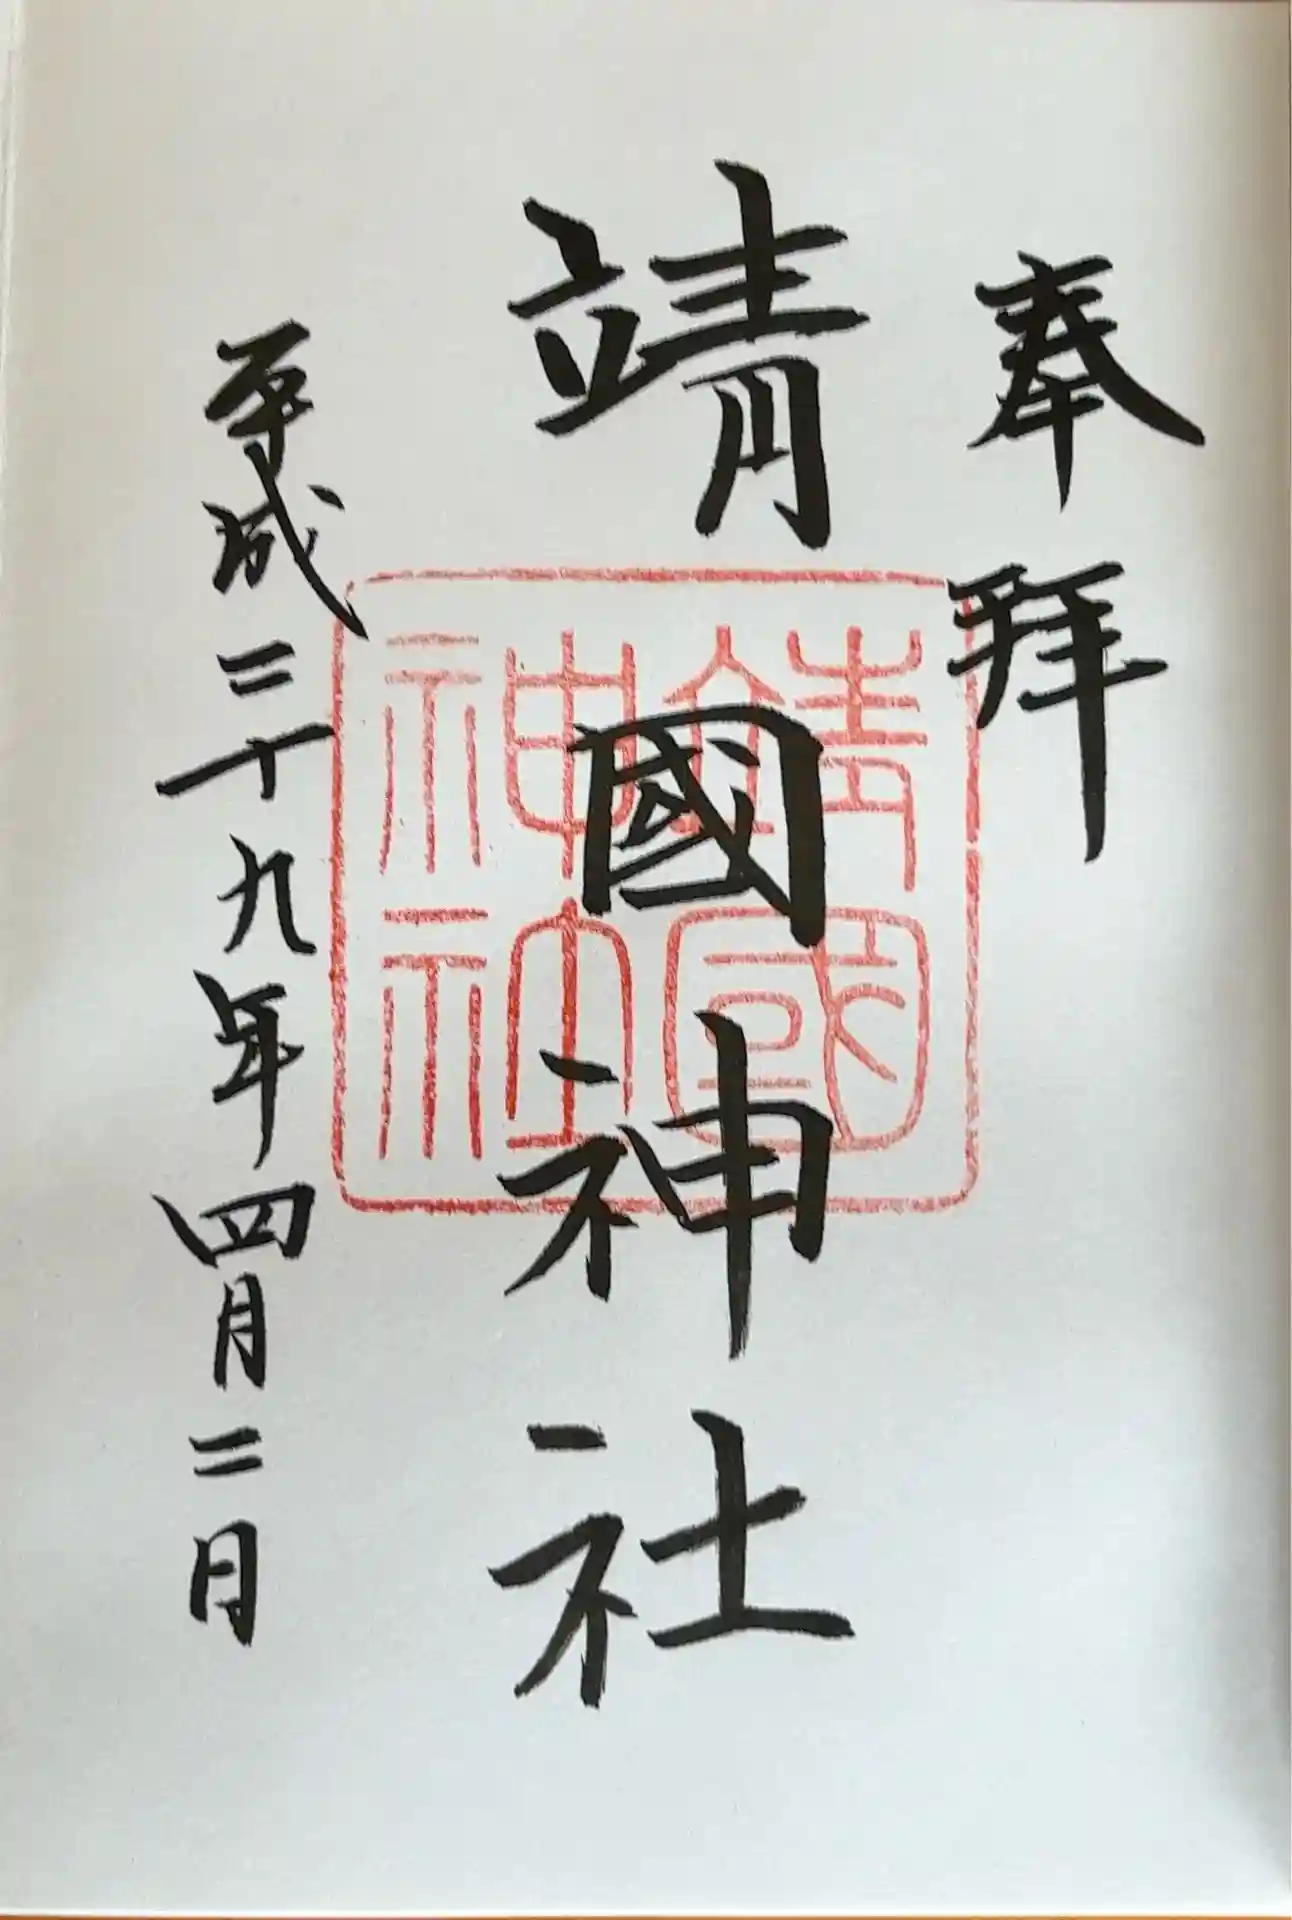 奉拝
靖國神社
平成二十九年四月二日
靖國
神社